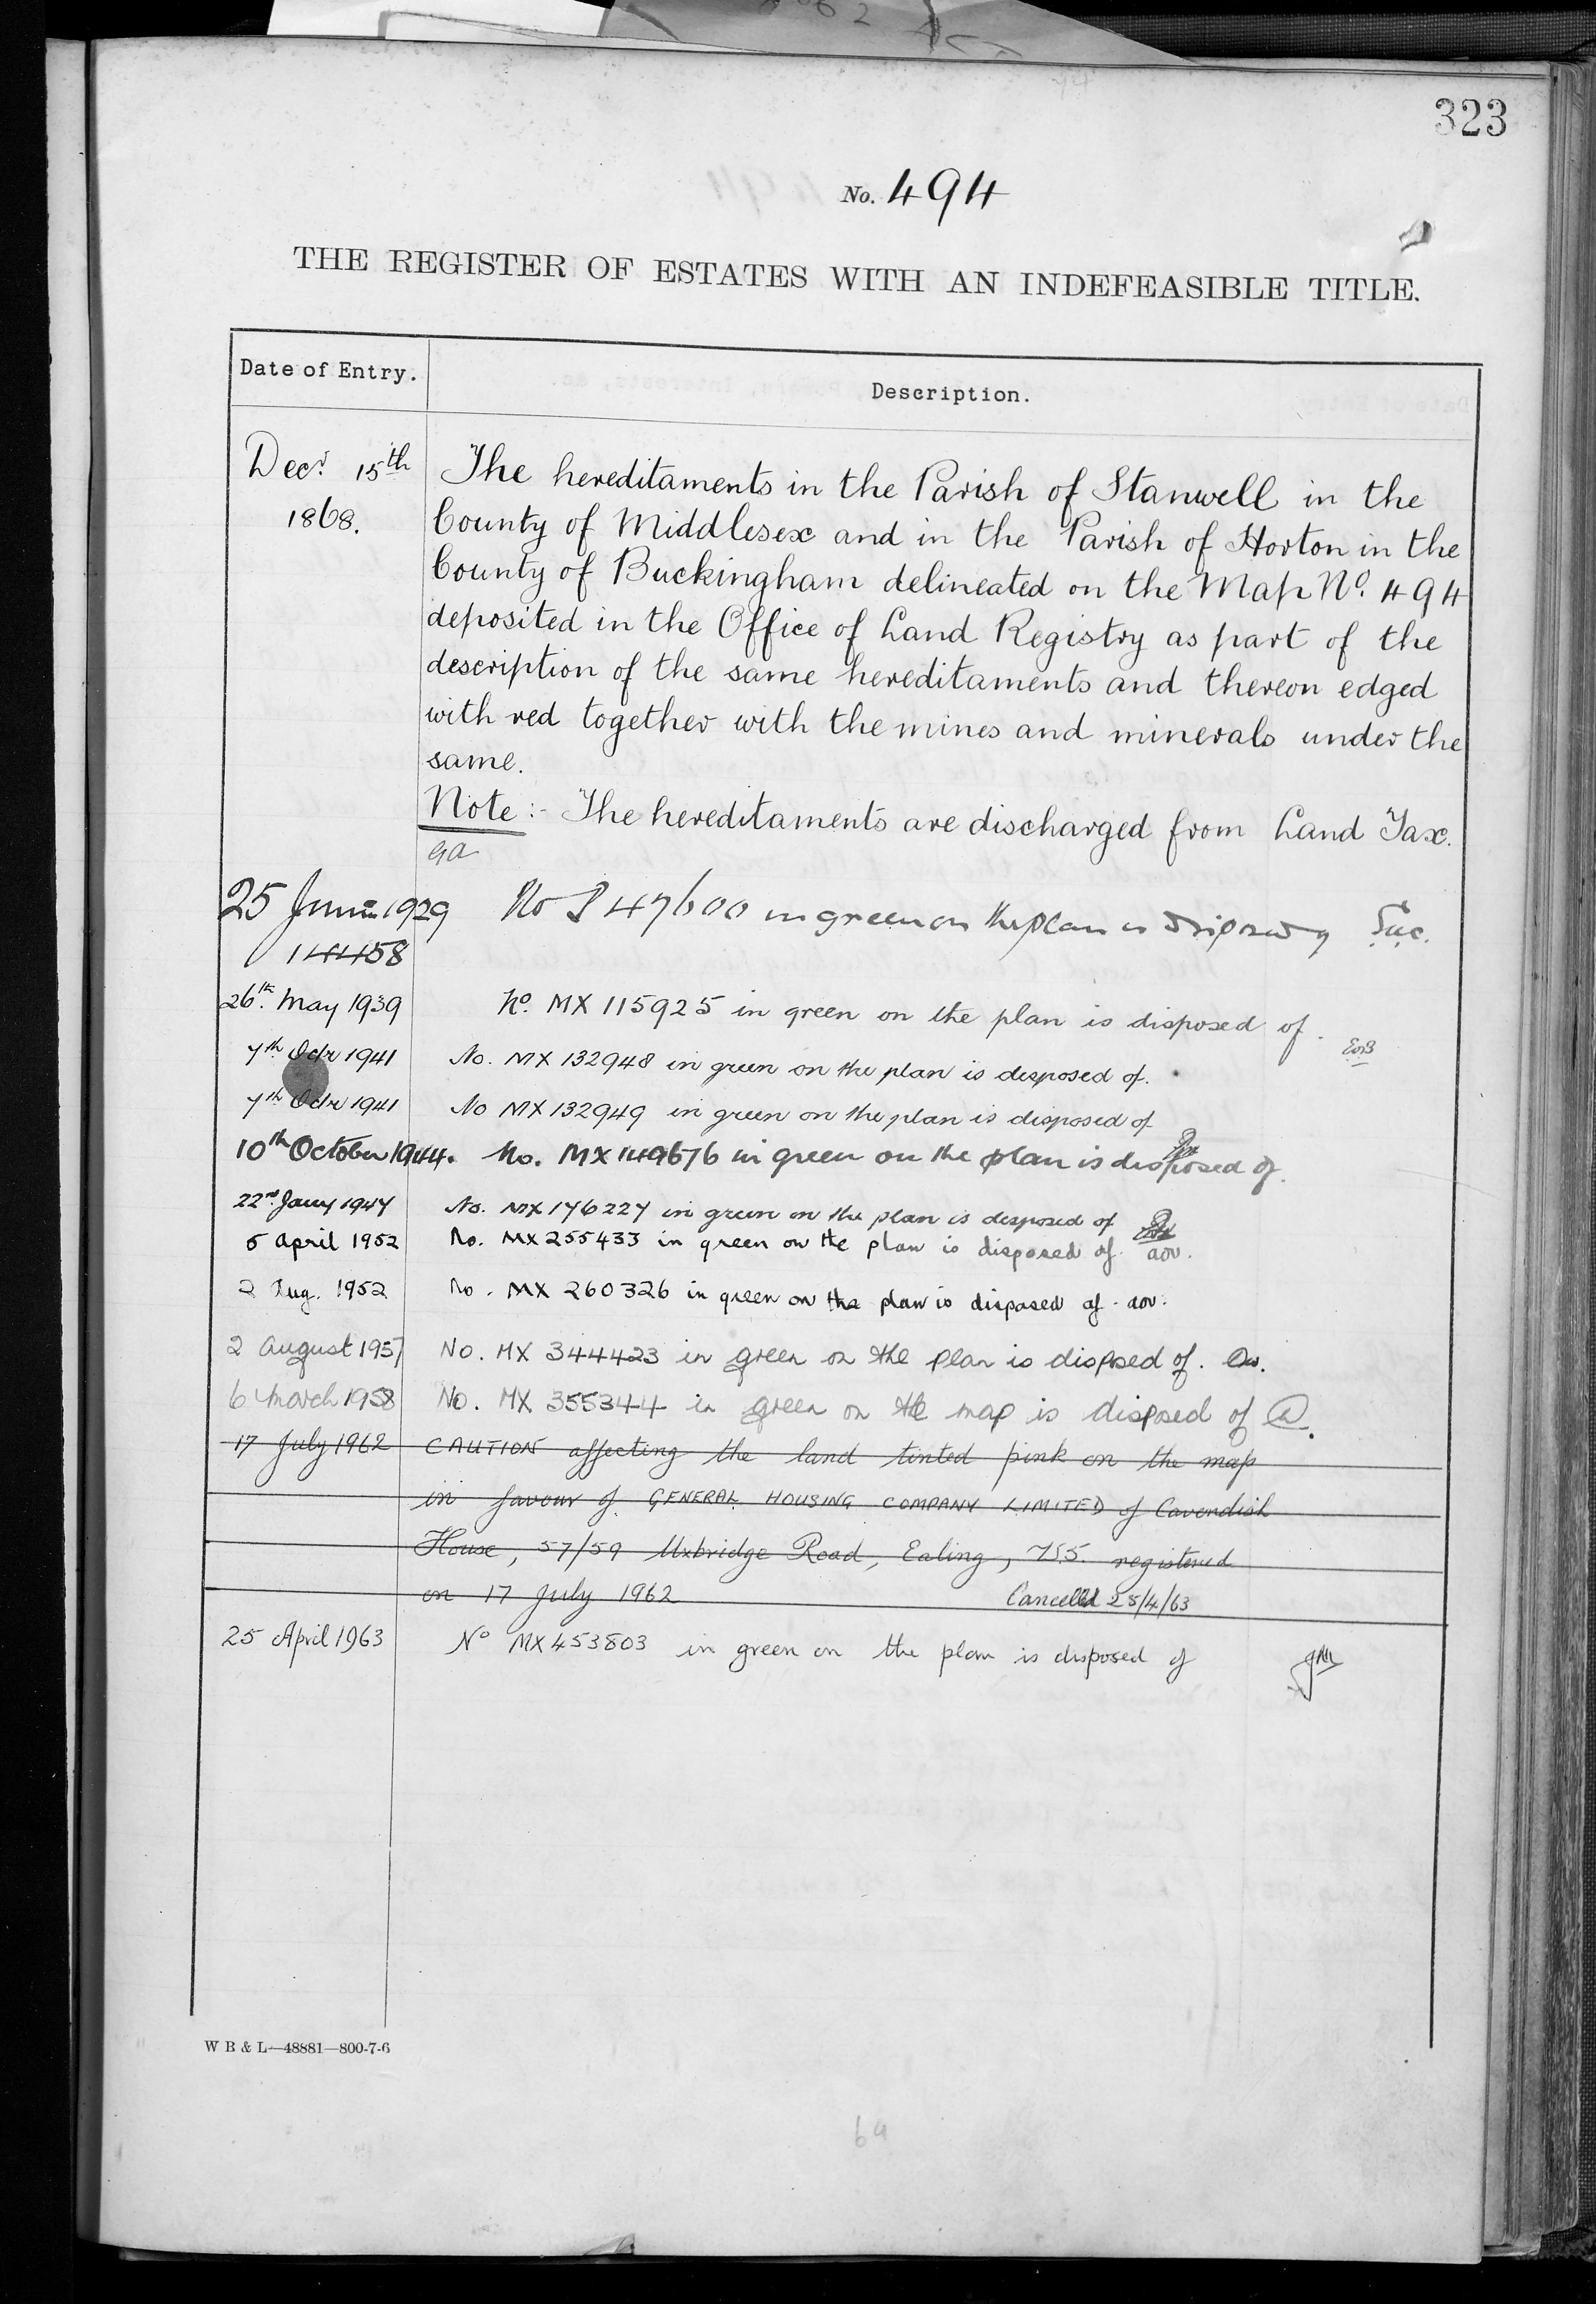 323
No. 494
THE REGISTER OF ESTATES WITH AN INDEFEASIBLE TITLE.
Date of Entry.
Description.
Decr 15th The hereditaments in the Parish of Stanwell in the
1868. County of Middlesex and in the Parish of Horton in the
County of Buckingham delineated on the Map No. 494
deposited in the Office of Land Registry as part of the
description of the same hereditaments and thereon edged
with red together with the mines and minerals under the
same.
Note:- The hereditaments are discharged from Land Tax.
GA
25 1929 No P 47600 in green on the plan is disposed of
14458
26th May 1939 No. MX 115925 in green on the plan is disposed of.
EoB
7th Octr 1941 No. MX 132948 in green on the plan is disposed of.
7th Octr 1941 No MX 132949 in green on the plan is disposed of
10th October 1944. No. MX 149676 in green on the plan is disposed of.
22nd Jany 1947 No. MX 176227 in green on the plan is disposed of
5 April 1952 No. MX 255433 in green on the plan is disposed of. aov.
2 Aug. 1952 No. MX 260326 in green on the plan is disposed of. aov.
2 August 1957 No. MX 344423 in green on the plan is disposed of.
6 March 1958 No. MX 355344 in green on the map is disposed of
17 July 1962 CAUTION affecting the land tinted pink on the map
in favour of GENERAL HOUSING COMPANY LIMITED of Cavendish
House, 57/59 Uxbridge Road, Ealing, W.5. registered
on 17 July 1962 Cancelled 25/4/63
25 April 1963 No MX 453803 in green on the plan is disposed of
W B & L—48881—800-7-6